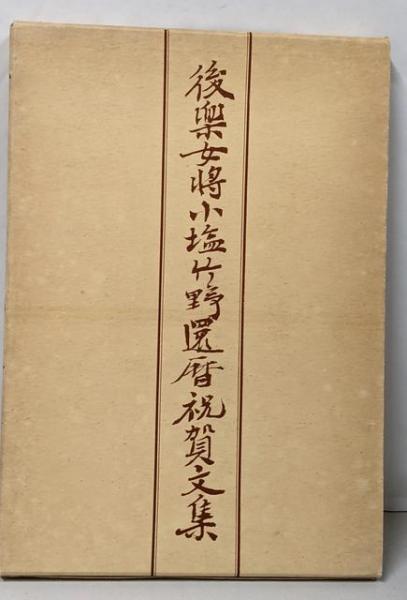 後樂女将小塩竹野還暦祝賀文集